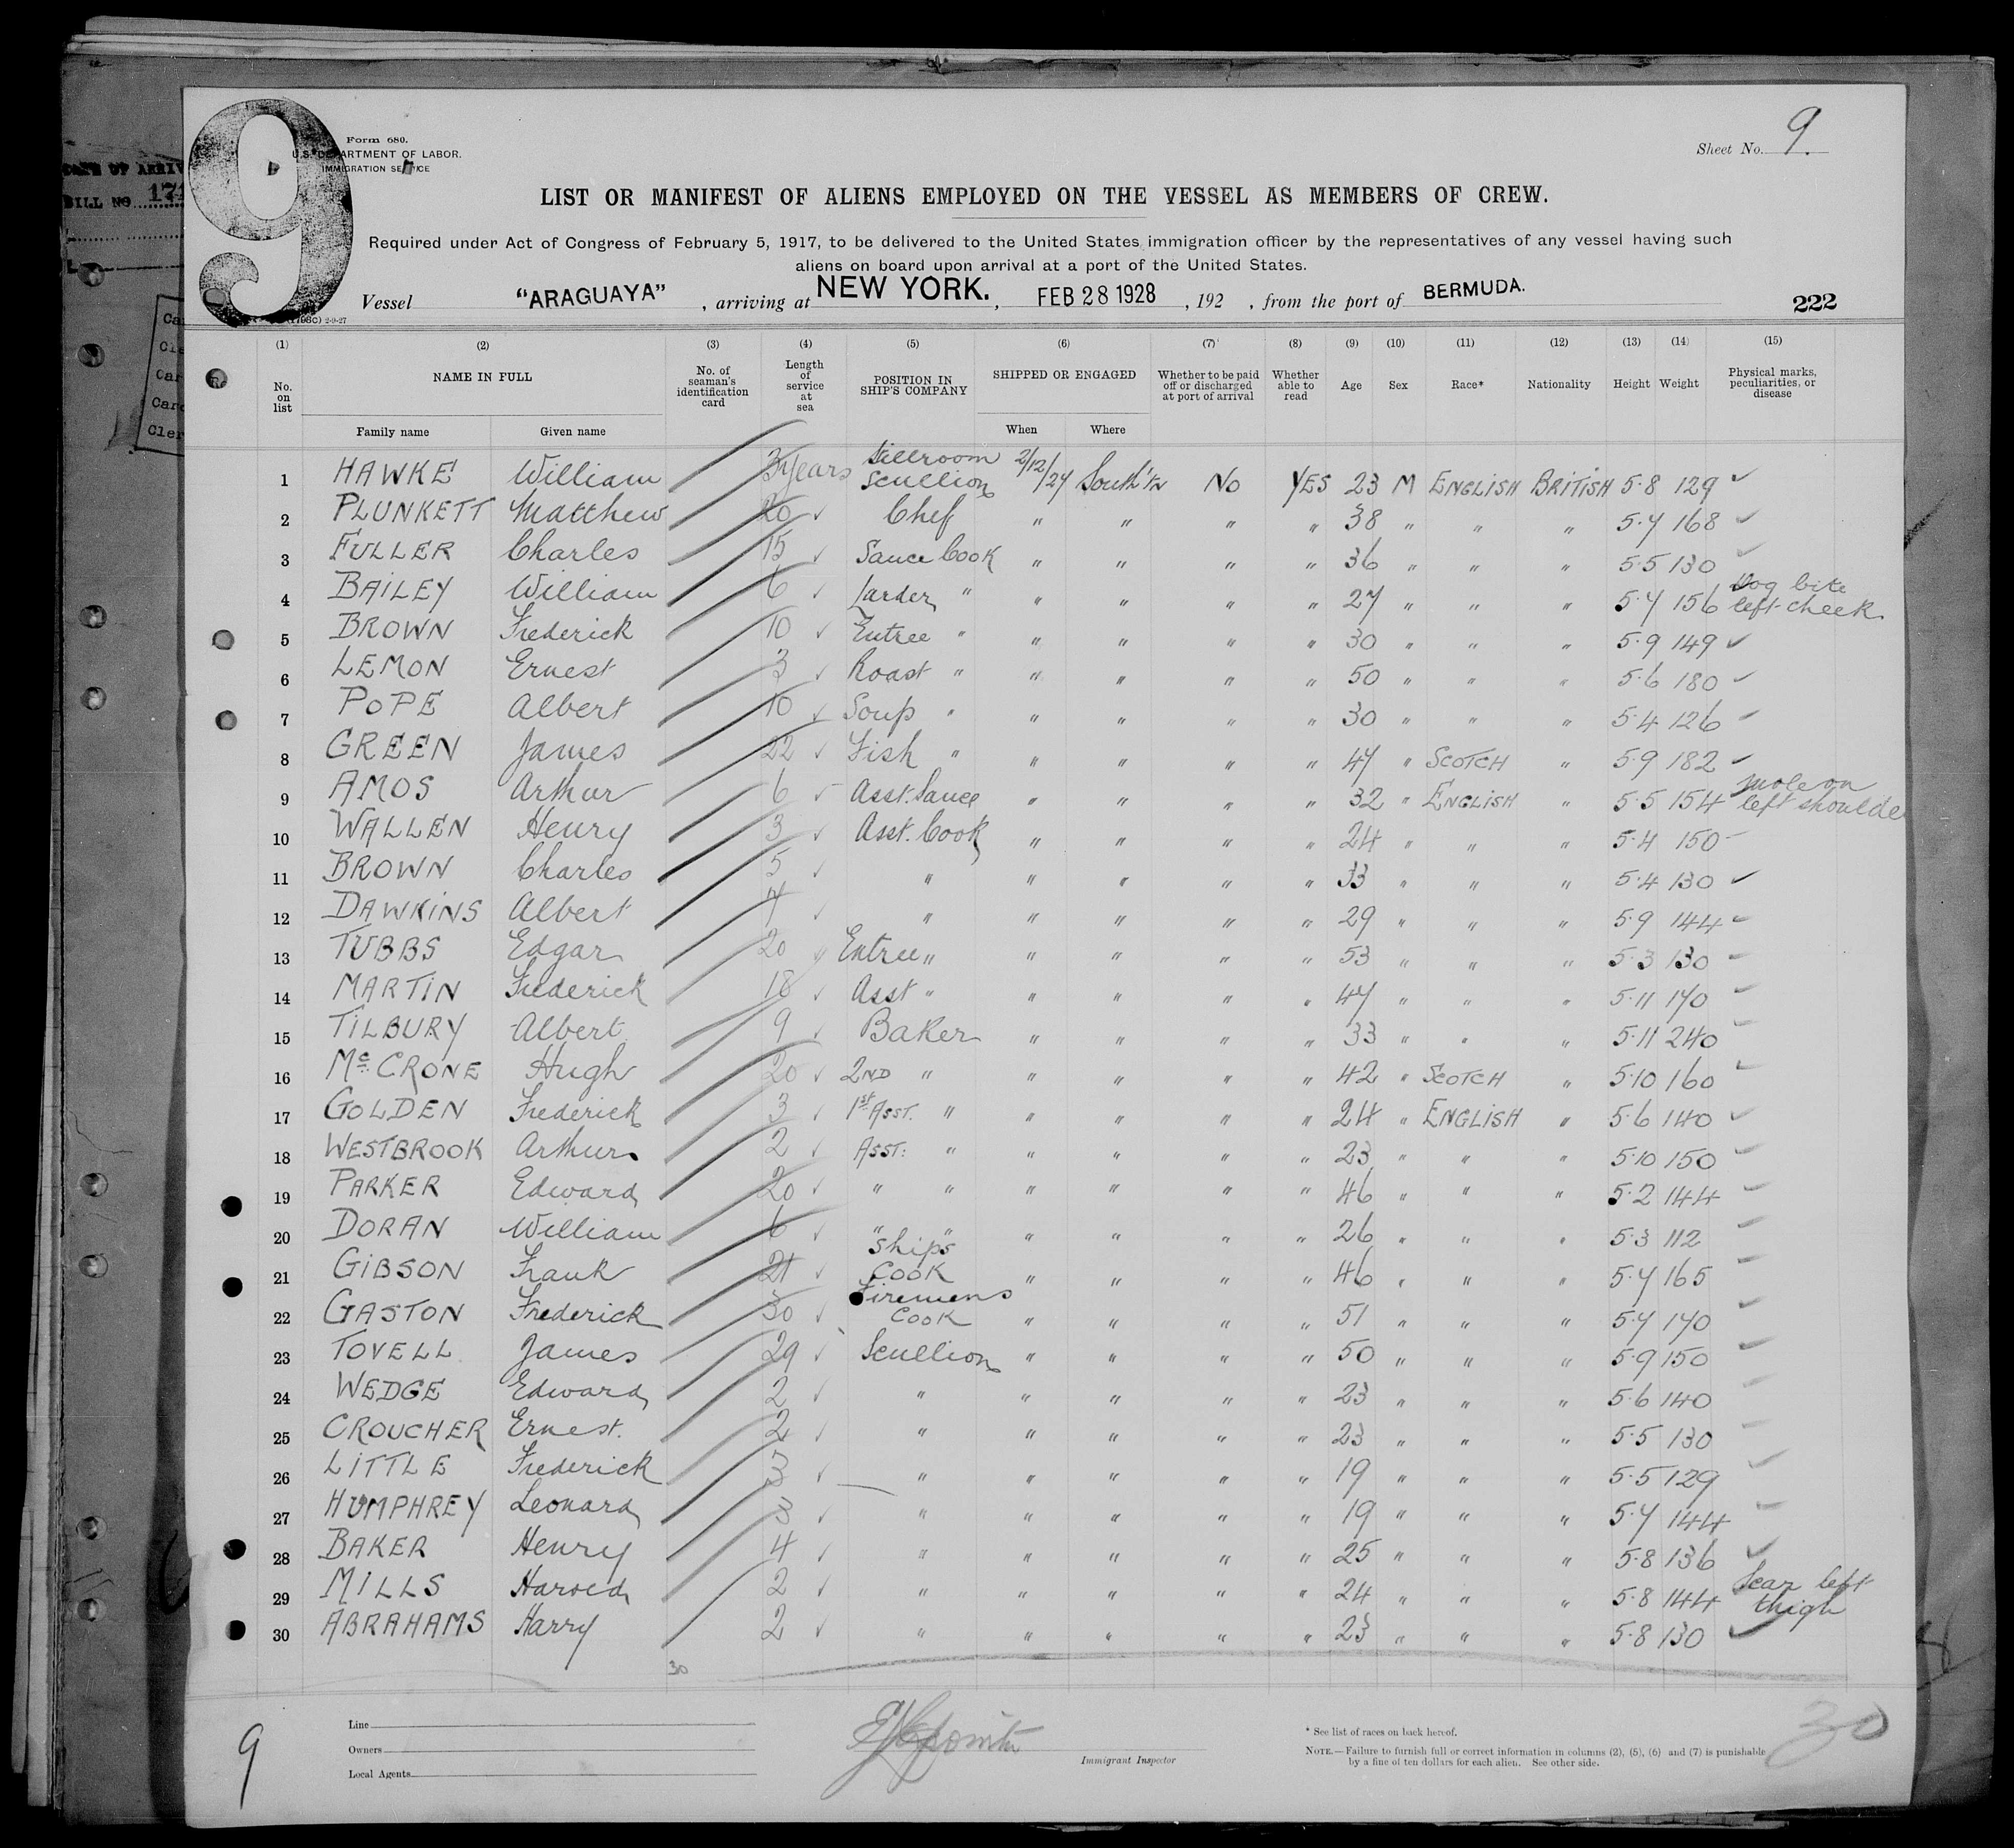 9
Form 680.
U.S. DEPARTMENT OF LABOR.
IMMIGRATION SERVICE
Sheet No. 9.
BILL NO
LIST OR MANIFEST OF ALIENS EMPLOYED ON THE VESSEL AS MEMBERS OF CREW.
Required under Act of Congress of February 5, 1917, to be delivered to the United States immigration officer by the representatives of any vessel having such
aliens on board upon arrival at a port of the United States.
Vessel "ARAGUAYA", arriving at NEW YORK., FEB 28 1928, 192 , from the port of BERMUDA.
222
(1) (2) (3) (4) (5) (6) (7) (8) (9) (10) (11) (12) (13) (14) (15)
No. on list NAME IN FULL No. of seaman's identification card Length of service at sea POSITION IN SHIP'S COMPANY SHIPPED OR ENGAGED Whether to be paid off or discharged at port of arrival Whether able to read Age Sex Race* Nationality Height Weight Physical marks, peculiarities, or disease
Family name Given name When Where
1 HAWKE William 3 years Stillroom Scullion 2/12/27 South'tn No YES 23 M ENGLISH BRITISH 5·8 129 ✓
2 PLUNKETT Matthew 20 ✓ Chef " " " " 38 " " " 5·7 168 ✓
3 FULLER Charles 15 ✓ Sauce Cook " " " " 36 " " " 5·5 130 ✓
4 BAILEY William 6 ✓ Larder " " " " " 27 " " " 5·7 156 Dog bite left cheek
5 BROWN Frederick 10 ✓ Entree " " " " " 30 " " " 5·9 149 ✓
6 LEMON Ernest 3 ✓ Roast " " " " " 50 " " " 5·6 180 ✓
7 POPE Albert 10 ✓ Soup " " " " " 30 " " " 5·4 126 ✓
8 GREEN James 22 ✓ Fish " " " " " 47 " SCOTCH " 5·9 182 ✓
9 AMOS Arthur 6 ✓ Asst. Sauce " " " " 32 " ENGLISH " 5·5 154 mole on left shoulde
10 WALLEN Henry 3 ✓ Asst. Cook " " " " 24 " " " 5·4 150 -
11 BROWN Charles 5 ✓ " " " " " 33 " " " 5·4 130 ✓
12 DAWKINS Albert 7 ✓ " " " " " 29 " " " 5·9 144 ✓
13 TUBBS Edgar 20 ✓ Entree " " " " " 53 " " " 5·3 130 ✓
14 MARTIN Frederick 18 ✓ Asst " " " " " 47 " " " 5·11 170 ✓
15 TILBURY Albert 9 ✓ Baker " " " " 33 " " " 5·11 240 ✓
16 McCRONE Hugh 20 ✓ 2ND " " " " " 42 " SCOTCH " 5·10 160 ✓
17 GOLDEN Frederick 3 ✓ 1st ASST. " " " " " 24 " ENGLISH " 5·6 140 ✓
18 WESTBROOK Arthur 2 ✓ ASST: " " " " " 23 " " " 5·10 150 ✓
19 PARKER Edward 20 ✓ " " " " " " 46 " " " 5·2 144 ✓
20 DORAN William 6 ✓ " " " " " " 26 " " " 5·3 112 ✓
21 GIBSON Frank 21 ✓ Ships Cook " " " " 46 " " " 5·7 165 ✓
22 GASTON Frederick 30 ✓ Firemens Cook " " " " 51 " " " 5·7 170 ✓
23 TOVELL James 29 ✓ Scullion " " " " 50 " " " 5·9 150 ✓
24 WEDGE Edward 2 ✓ " " " " " 23 " " " 5·6 140 ✓
25 CROUCHER Ernest. 2 ✓ " " " " " 23 " " " 5·5 130 ✓
26 LITTLE Frederick 3 ✓ " " " " " 19 " " " 5·5 129 ✓
27 HUMPHREY Leonard 3 ✓ " " " " " 19 " " " 5·7 144 ✓
28 BAKER Henry 4 ✓ " " " " " 25 " " " 5·8 136 ✓
29 MILLS Harold 2 ✓ " " " " " 24 " " " 5·8 144 Scar left thigh
30 ABRAHAMS Harry 2 ✓ " " " " " 23 " " " 5·8 130 ✓
30
9
Line
Owners
Local Agents
Immigrant Inspector
* See list of races on back hereof.
NOTE.—Failure to furnish full or correct information in columns (2), (5), (6) and (7) is punishable
by a fine of ten dollars for each alien. See other side.
30